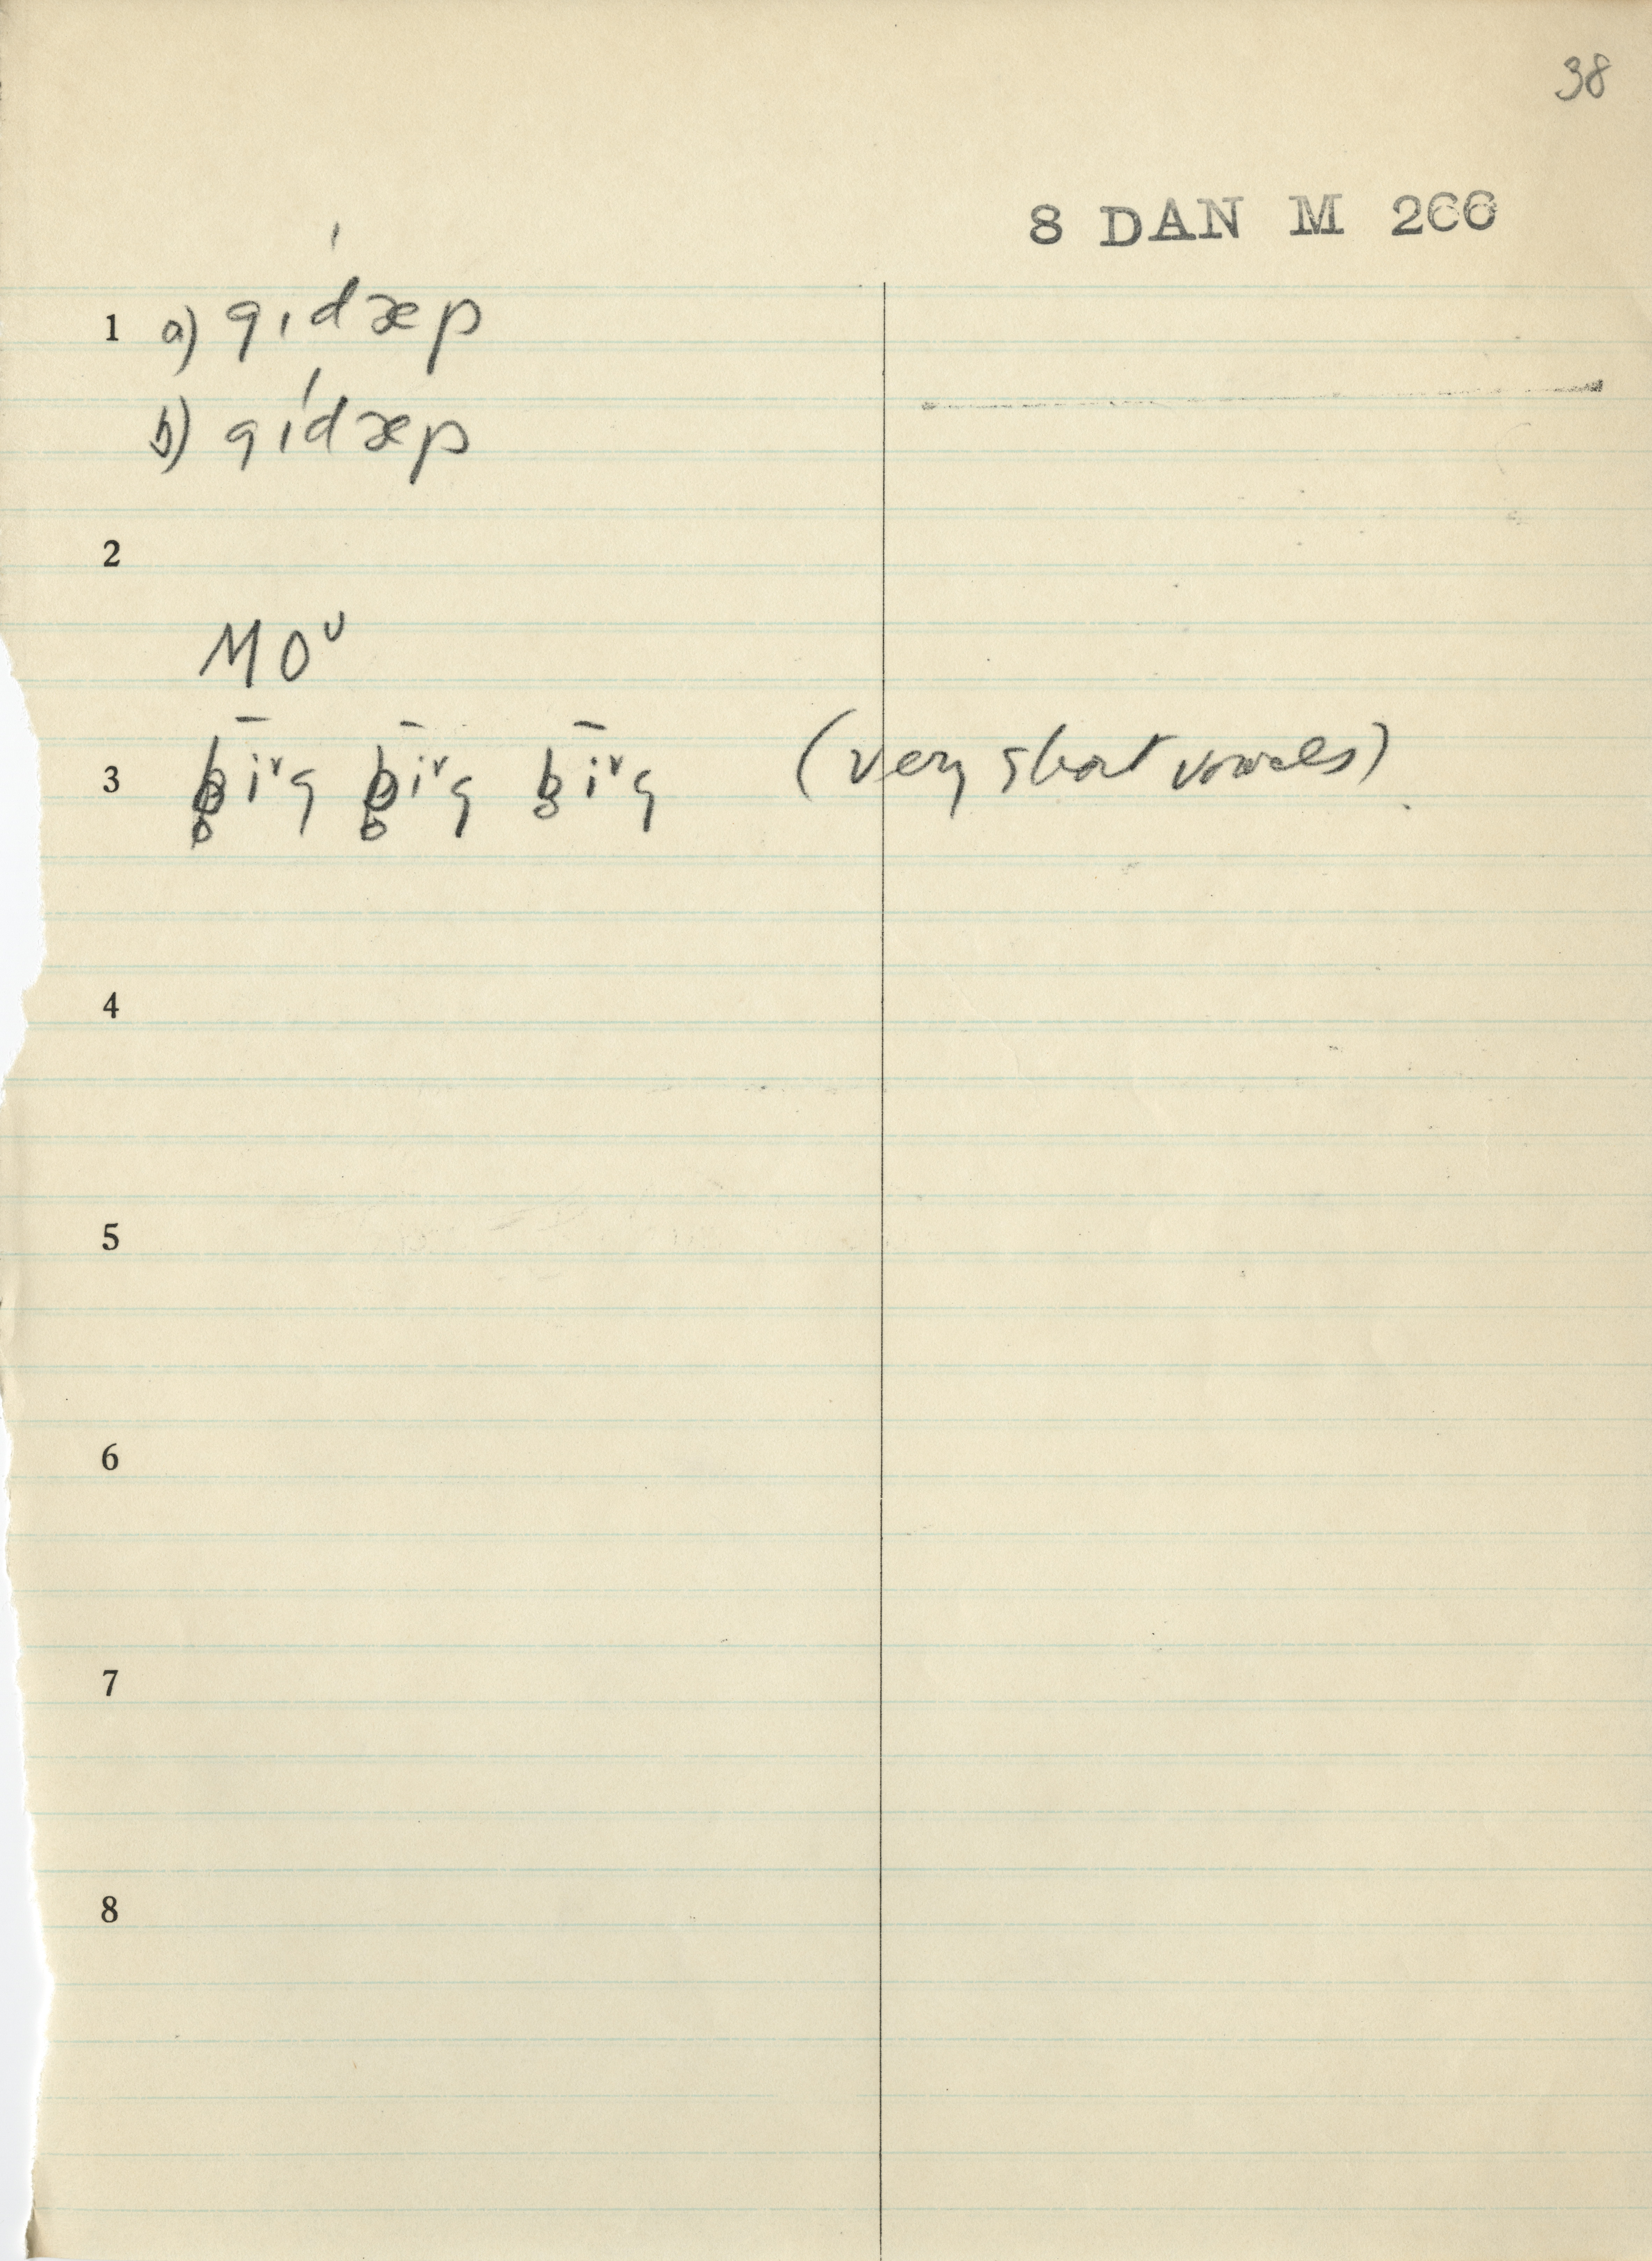 38
8 DAN M 266
1 a) gıdæp
b) gídæp
2
MOᵛ
3 b̥iᵛg b̥iᵛg b̥iᵛg (very short vowels)
4
5
6
7
8